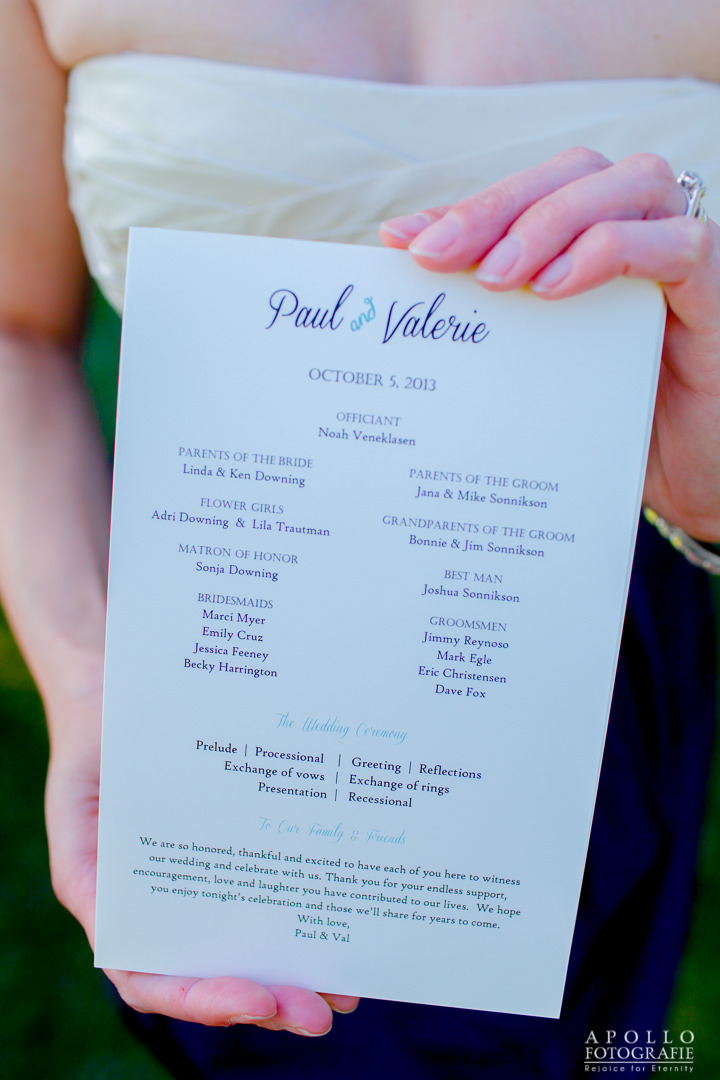 Paul and Valerie
OCTOBER 5, 2013
OFFICIANT
Noah Veneklasen
PARENTS OF THE BRIDE
Linda & Ken Downing
FLOWER GIRLS
Adri Downing & Lila Trautman
MATRON OF HONOR
Sonja Downing
BRIDESMAIDS
Marci Myer
Emily Cruz
Jessica Feeney
Becky Harrington
PARENTS OF THE GROOM
Jana & Mike Sonnikson
GRANDPARENTS OF THE GROOM
Bonnie & Jim Sonnikson
BEST MAN
Joshua Sonnikson
GROOMSMEN
Jimmy Reynoso
Mark Egle
Eric Christensen
Dave Fox
The Wedding Ceremony
Prelude | Processional | Greeting | Reflections
Exchange of vows | Exchange of rings
Presentation | Recessional
To Our Family & Friends
We are so honored, thankful and excited to have each of you here to witness
our wedding and celebrate with us. Thank you for your endless support,
encouragement, love and laughter you have contributed to our lives. We hope
you enjoy tonight's celebration and those we'll share for years to come.
With love,
Paul & Val
APOLLO
FOTOGRAFIE
Rejoice for Eternity